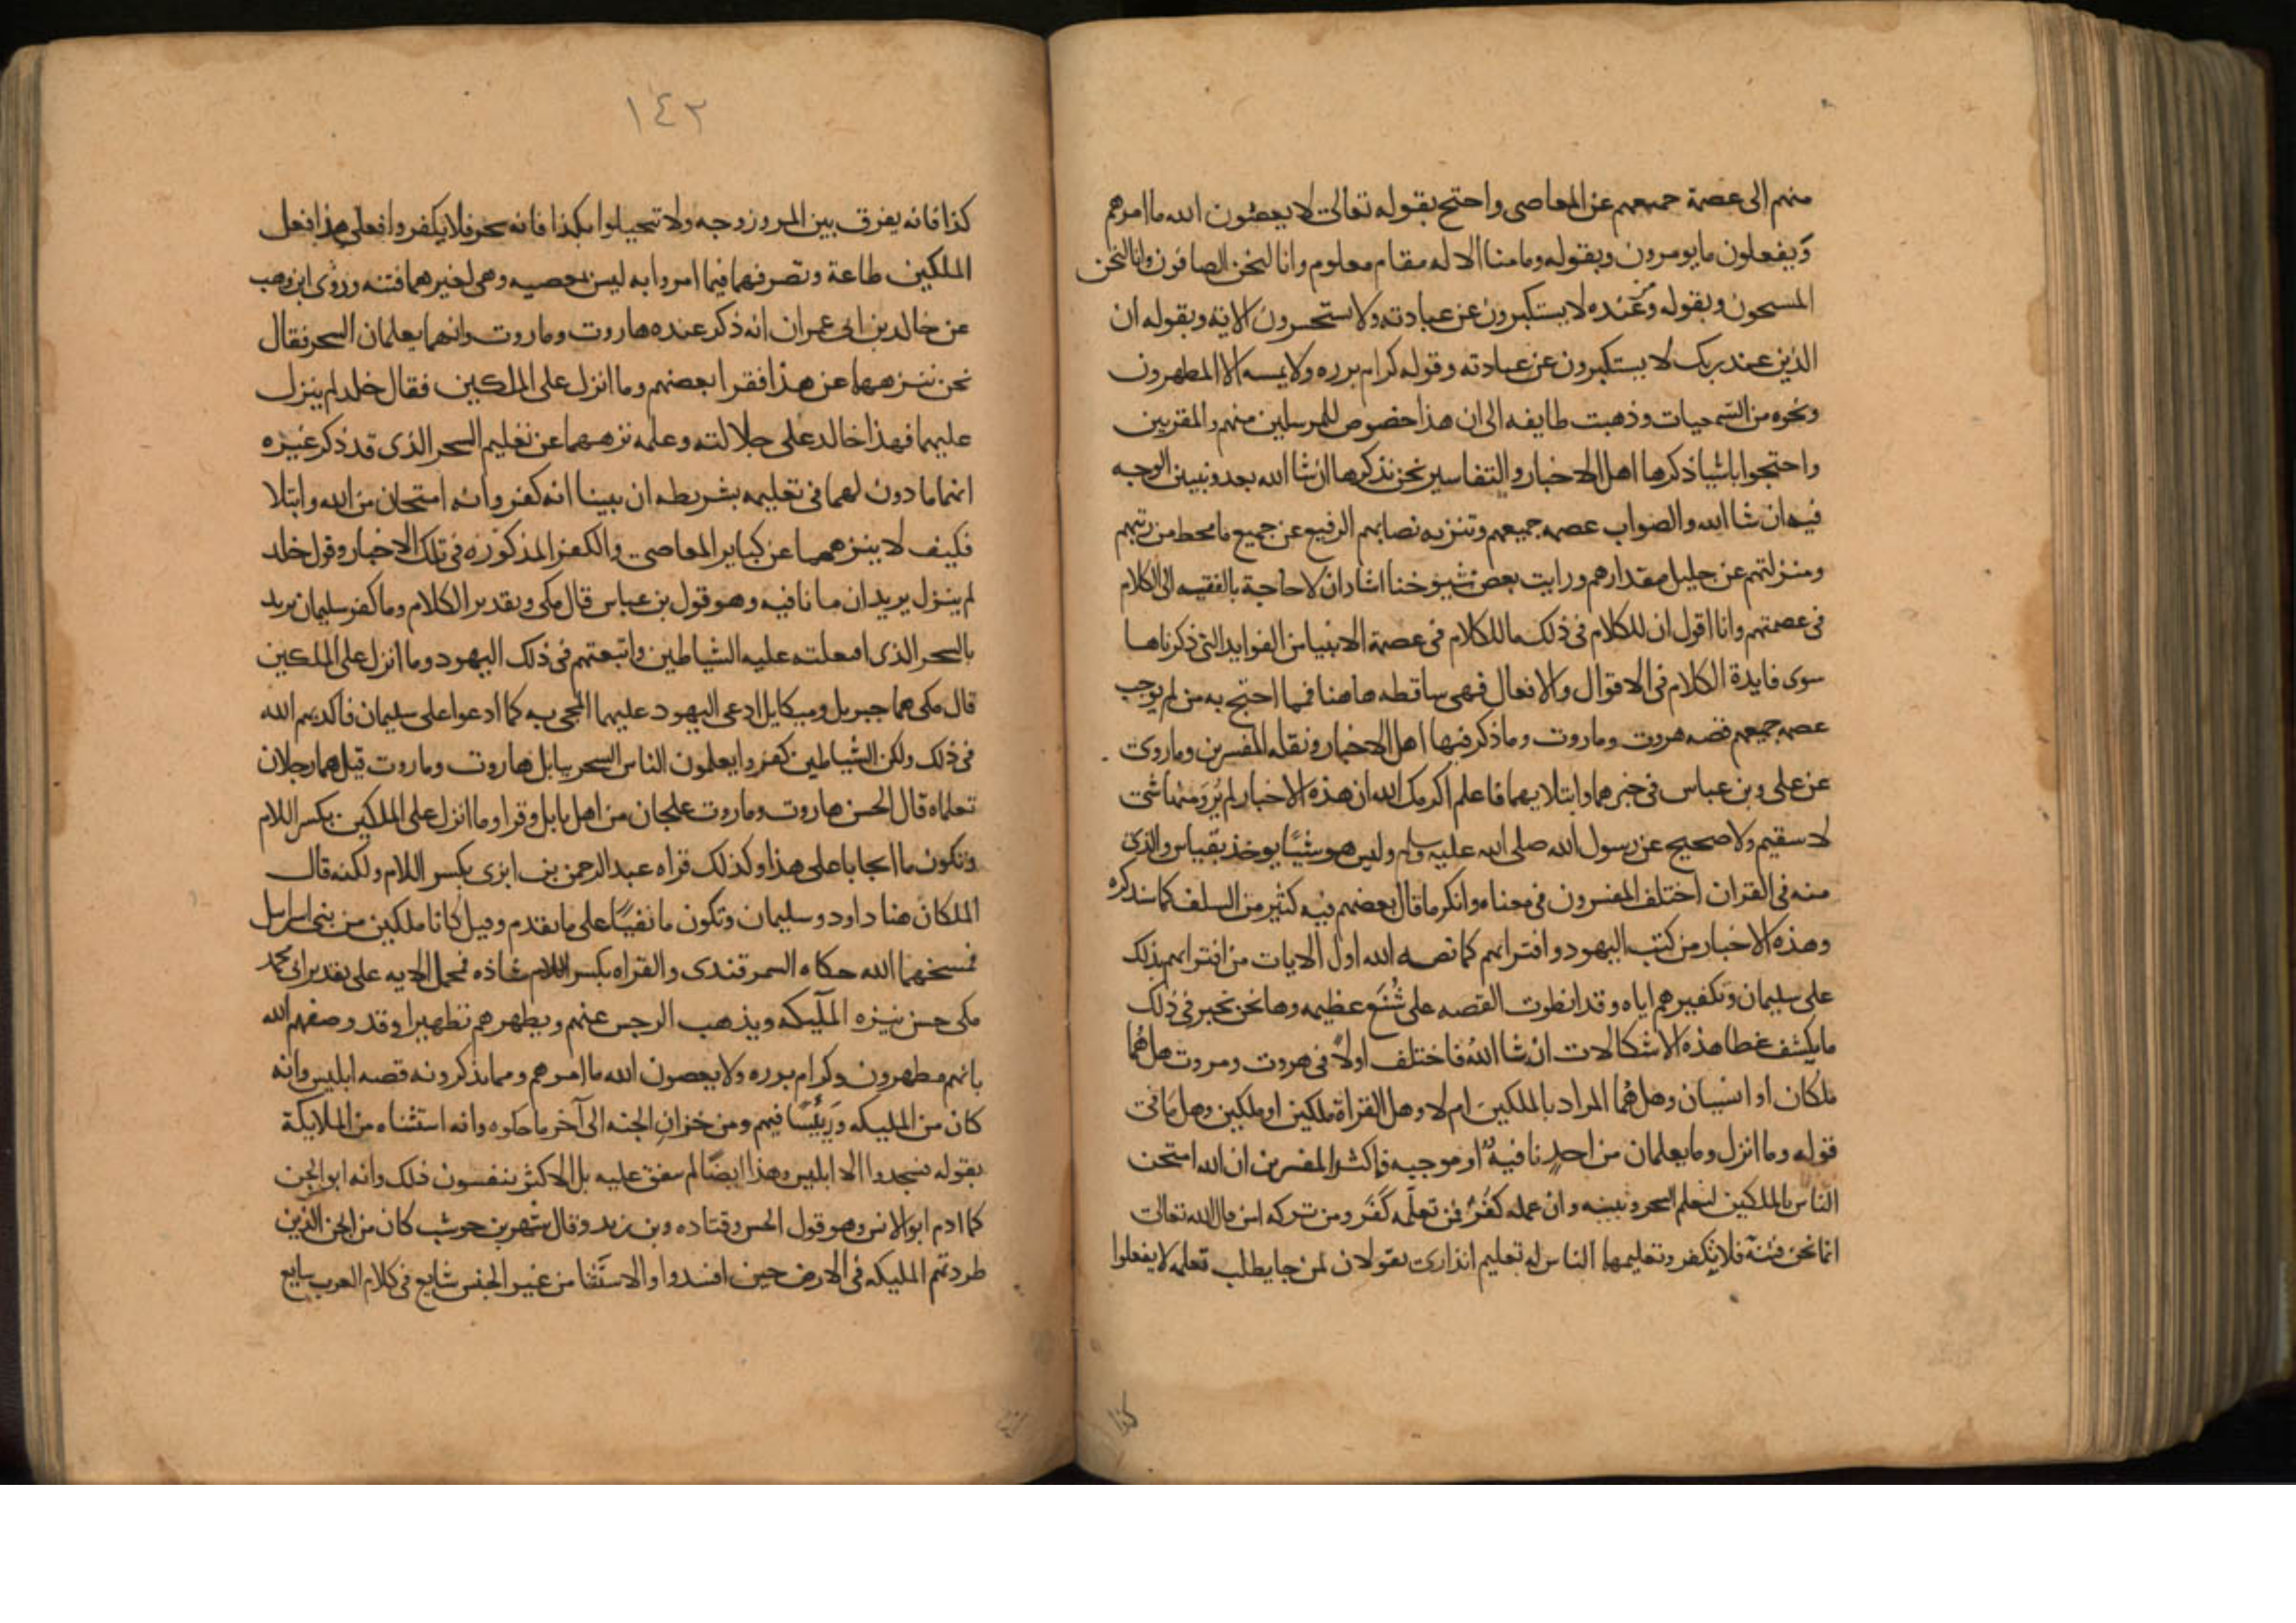 منهم الى عصمة جميعهم عن المعاصى واحتج بقوله تعالى لا يعصون الله ما امرهم
ويفعلون ما يومرون وبقوله وما منا الا له مقام معلوم وانا لنحن الصافون وانا لنحن
المسبحون وبقوله ومن عنده لا يستكبرون عن عبادته ولا يستحسرون الاية وبقوله ان
الذين عند ربك لا يستكبرون عن عبادته وقوله كرام برره ولا يمسه الا المطهرون
ونحوه من السمعيات وذهبت طايفه الى ان هذا خصوص للمرسلين منهم والمقربين
واحتجوا باشيا ذكرها اهل الاخبار والتفاسير نحن نذكرها ان شا الله بعد ونبين الوجه
فيها ان شا الله والصواب عصمه جميعهم وتنزيه نصابهم الرفيع عن جميع ما يحط من رتبهم
ومنزلتهم عن جليل مقدارهم ورايت بعض شيوخنا اشار ان لا حاجة بالفقيه الى الكلام
فى عصمتهم وانا اقول ان للكلام فى ذلك ما للكلام فى عصمة الانبيا من الفوايد التى ذكرناها
سوى فايدة الكلام فى الاقوال والافعال فهى ساقطه هاهنا فمما احتج به من لم يوجب
عصمه جميعهم قصه هروت وماروت وما ذكر فيها اهل الاخبار ونقله المفسرين وما روى
عن على وبن عباس فى خبرهما وابتلايهما فاعلم اكرمك الله ان هذه الاخبار لم يرو منها شى
لا سقيم ولا صحيح عن رسول الله صلى الله عليه وسلم وليس هو شيئا يوخذ بقياس والذى
منه فى القران اختلف المفسرون فى معناه وانكر ما قال بعضهم فيه كثير من السلف كما سنذكره
وهذه الاخبار من كتب اليهود وافترايهم كما نصه الله اول الايات من افترايهم بذلك
على سليمان وتكفيرهم اياه وقد انطوت القصه على شنع عظيمه وها نحن نخبر فى ذلك
ما يكشف غطا هذه الاشكالات ان شا الله فاختلف اولا فى هروت ومروت هل هما
ملكان او انسيان وهل هما المراد بالملكين ام لا وهل القراة ملكين او ملكين وهل ما فى
قوله وما انزل وما يعلمان من احد نافية او موجبه فاكثر المفسرين ان الله امتحن
الناس بالملكين لتعليم السحر وتبيينه وان عمله كفر فمن تعلمه كفر ومن تركه امن قال الله تعالى
انما نحن فتنة فلا تكفر وتعليمهما الناس له تعليم انذار اى يقولان لمن جا يطلب تعلمه لا يفعلوا
كذا
١٤٣
كذا فانه يفرق بين المر وزوجه ولا تتحيلوا بكذا فانه سحر فلا يكفروا فعلى هذا فعل
الملكين طاعة وتصرفهما فيما امروا به ليس بمعصيه وهى لغيرهما فتنه وروى ابن وهب
عن خالد بن ابى عمران انه ذكر عنده هاروت وماروت وانهما يعلمان السحر فقال
نحن ننزههما عن هذا فقرا بعضهم وما انزل على الملكين فقال خلد لم ينزل
عليهما فهذا خالد على جلالته وعلمه نزههما عن تعليم السحر الذى قد ذكر غيره
انهما مادون لهما فى تعليمه بشريطه ان يبينا انه كفر وانه امتحان من الله وابتلا
فكيف لا ينزههما عن كباير المعاصى والكفر المذكوره فى تلك الاخبار وقول خلد
لم ينزل يريد ان ما نافيه وهو قول بن عباس قال مكى وتقدير الكلام وما كفر سليمان يريد
بالسحر الذى افعلته عليه الشياطين واتبعتهم فى ذلك اليهود وما انزل على الملكين
قال مكى هما جبريل وميكايل ادعى اليهود عليهما المجى به كما ادعوا على سليمان فاكذبهم الله
فى ذلك ولكن الشياطين كفروا يعلمون الناس السحر ببابل هاروت وماروت قيل هما رجلان
تعلماه قال الحسن هاروت وماروت علجان من اهل بابل وقرا وما انزل على الملكين بكسر اللام
وتكون ما ايجابا على هذا وكذلك قراه عبد الرحمن بن ابزى بكسر اللام ولكنه قال
الملكان هنا داود وسليمان وتكون ما نفيا على ما تقدم وقيل كانا ملكين من بنى اسرايل
فمسخهما الله حكاه السمرقندى والقراه بكسر اللام شاذه فمحمل الايه على تقدير ابى محمد
مكى حسن ينزه المليكه ويذهب الرجس عنهم ويطهرهم تطهيرا وقد وصفهم الله
بانهم مطهرون وكرام برره ولا يعصون الله ما امرهم ومما يذكرونه قصه ابليس وانه
كان من المليكه ورييسا فيهم ومن خزان الجنه الى آخر ما حكوه وانه استثناه من الملايكة
بقوله فسجدوا الا ابليس وهذا ايضا لم يتفق عليه بل الاكثر ينفون ذلك وانه ابو الجن
كما ادم ابو الانس وهو قول الحسن وقتاده وبن زيد وقال شهر بن حوشب كان من الجن الذين
طردتهم المليكه فى الارض حين افسدوا والاستثنا من غير الجنس شايع فى كلام العرب سايغ